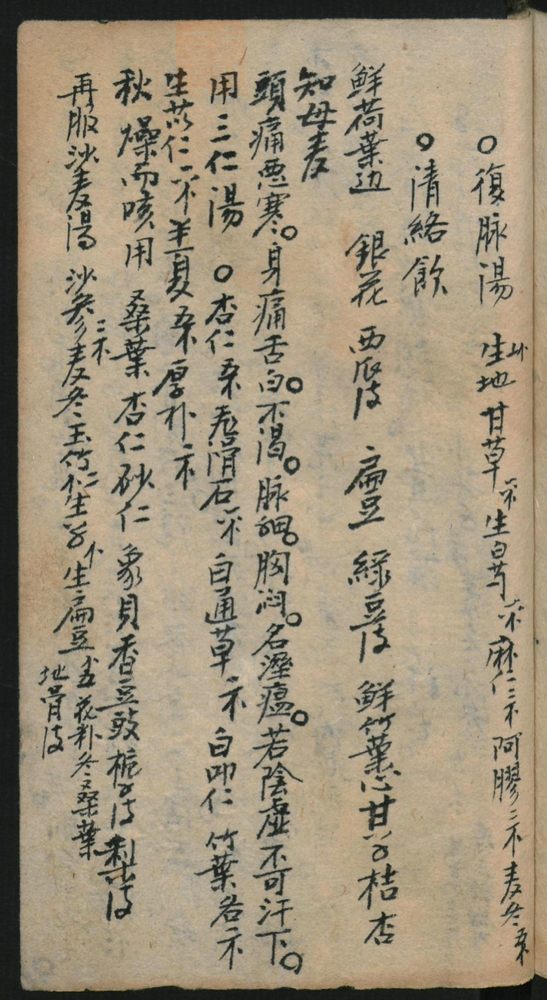 ○復脉湯 生地 甘草 生白芍 麻仁 阿膠 麦冬
○清絡飲
鮮荷葉边 銀花 西瓜皮 扁豆 綠豆皮 鮮竹葉心 甘草 桔 杏
知母 麦
頭痛悪寒。身痛舌白。不渴。脉細。胸闷。名溼瘟。若陰虛不可汗下。
用三仁湯 ○杏仁 飞滑石 白通草 白叩仁 竹葉各
生苡仁 半夏 厚朴
秋燥而咳用 桑葉 杏仁 砂仁 象貝 香豆豉 梔皮 梨皮
再服沙麦湯 沙參 麦冬 玉竹 生草 生扁豆 花粉 冬桑葉
地骨皮